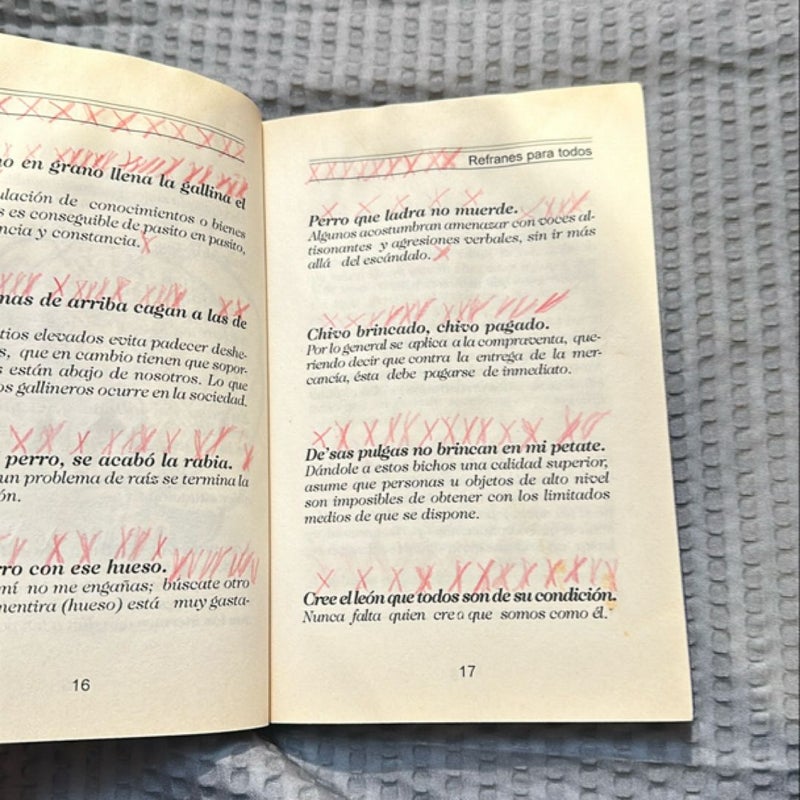 en grano llena la gallina el
ulación de conocimientos o bienes
s es conseguible de pasito en pasito,
encia y constancia.
mas de arriba cagan a las de
tios elevados evita padecer deshe-
s, que en cambio tienen que sopor-
s están abajo de nosotros. Lo que
os gallineros ocurre en la sociedad.
perro, se acabó la rabia.
un problema de raís se termina la
ón.
rro con ese hueso.
mí no me engañas; búscate otro
mentira (hueso) está muy gasta-
16
Refranes para todos
Perro que ladra no muerde.
Algunos acostumbran amenazar con voces al-
tisonantes y agresiones verbales, sin ir más
allá del escándalo.
Chivo brincado, chivo pagado.
Por lo general se aplica a la compraventa, que-
riendo decir que contra la entrega de la mer-
cancía, ésta debe pagarse de inmediato.
De'sas pulgas no brincan en mi petate.
Dándole a estos bichos una calidad superior,
asume que personas u objetos de alto nivel
son imposibles de obtener con los limitados
medios de que se dispone.
Cree el león que todos son de su condición.
Nunca falta quien crea que somos como él.
17